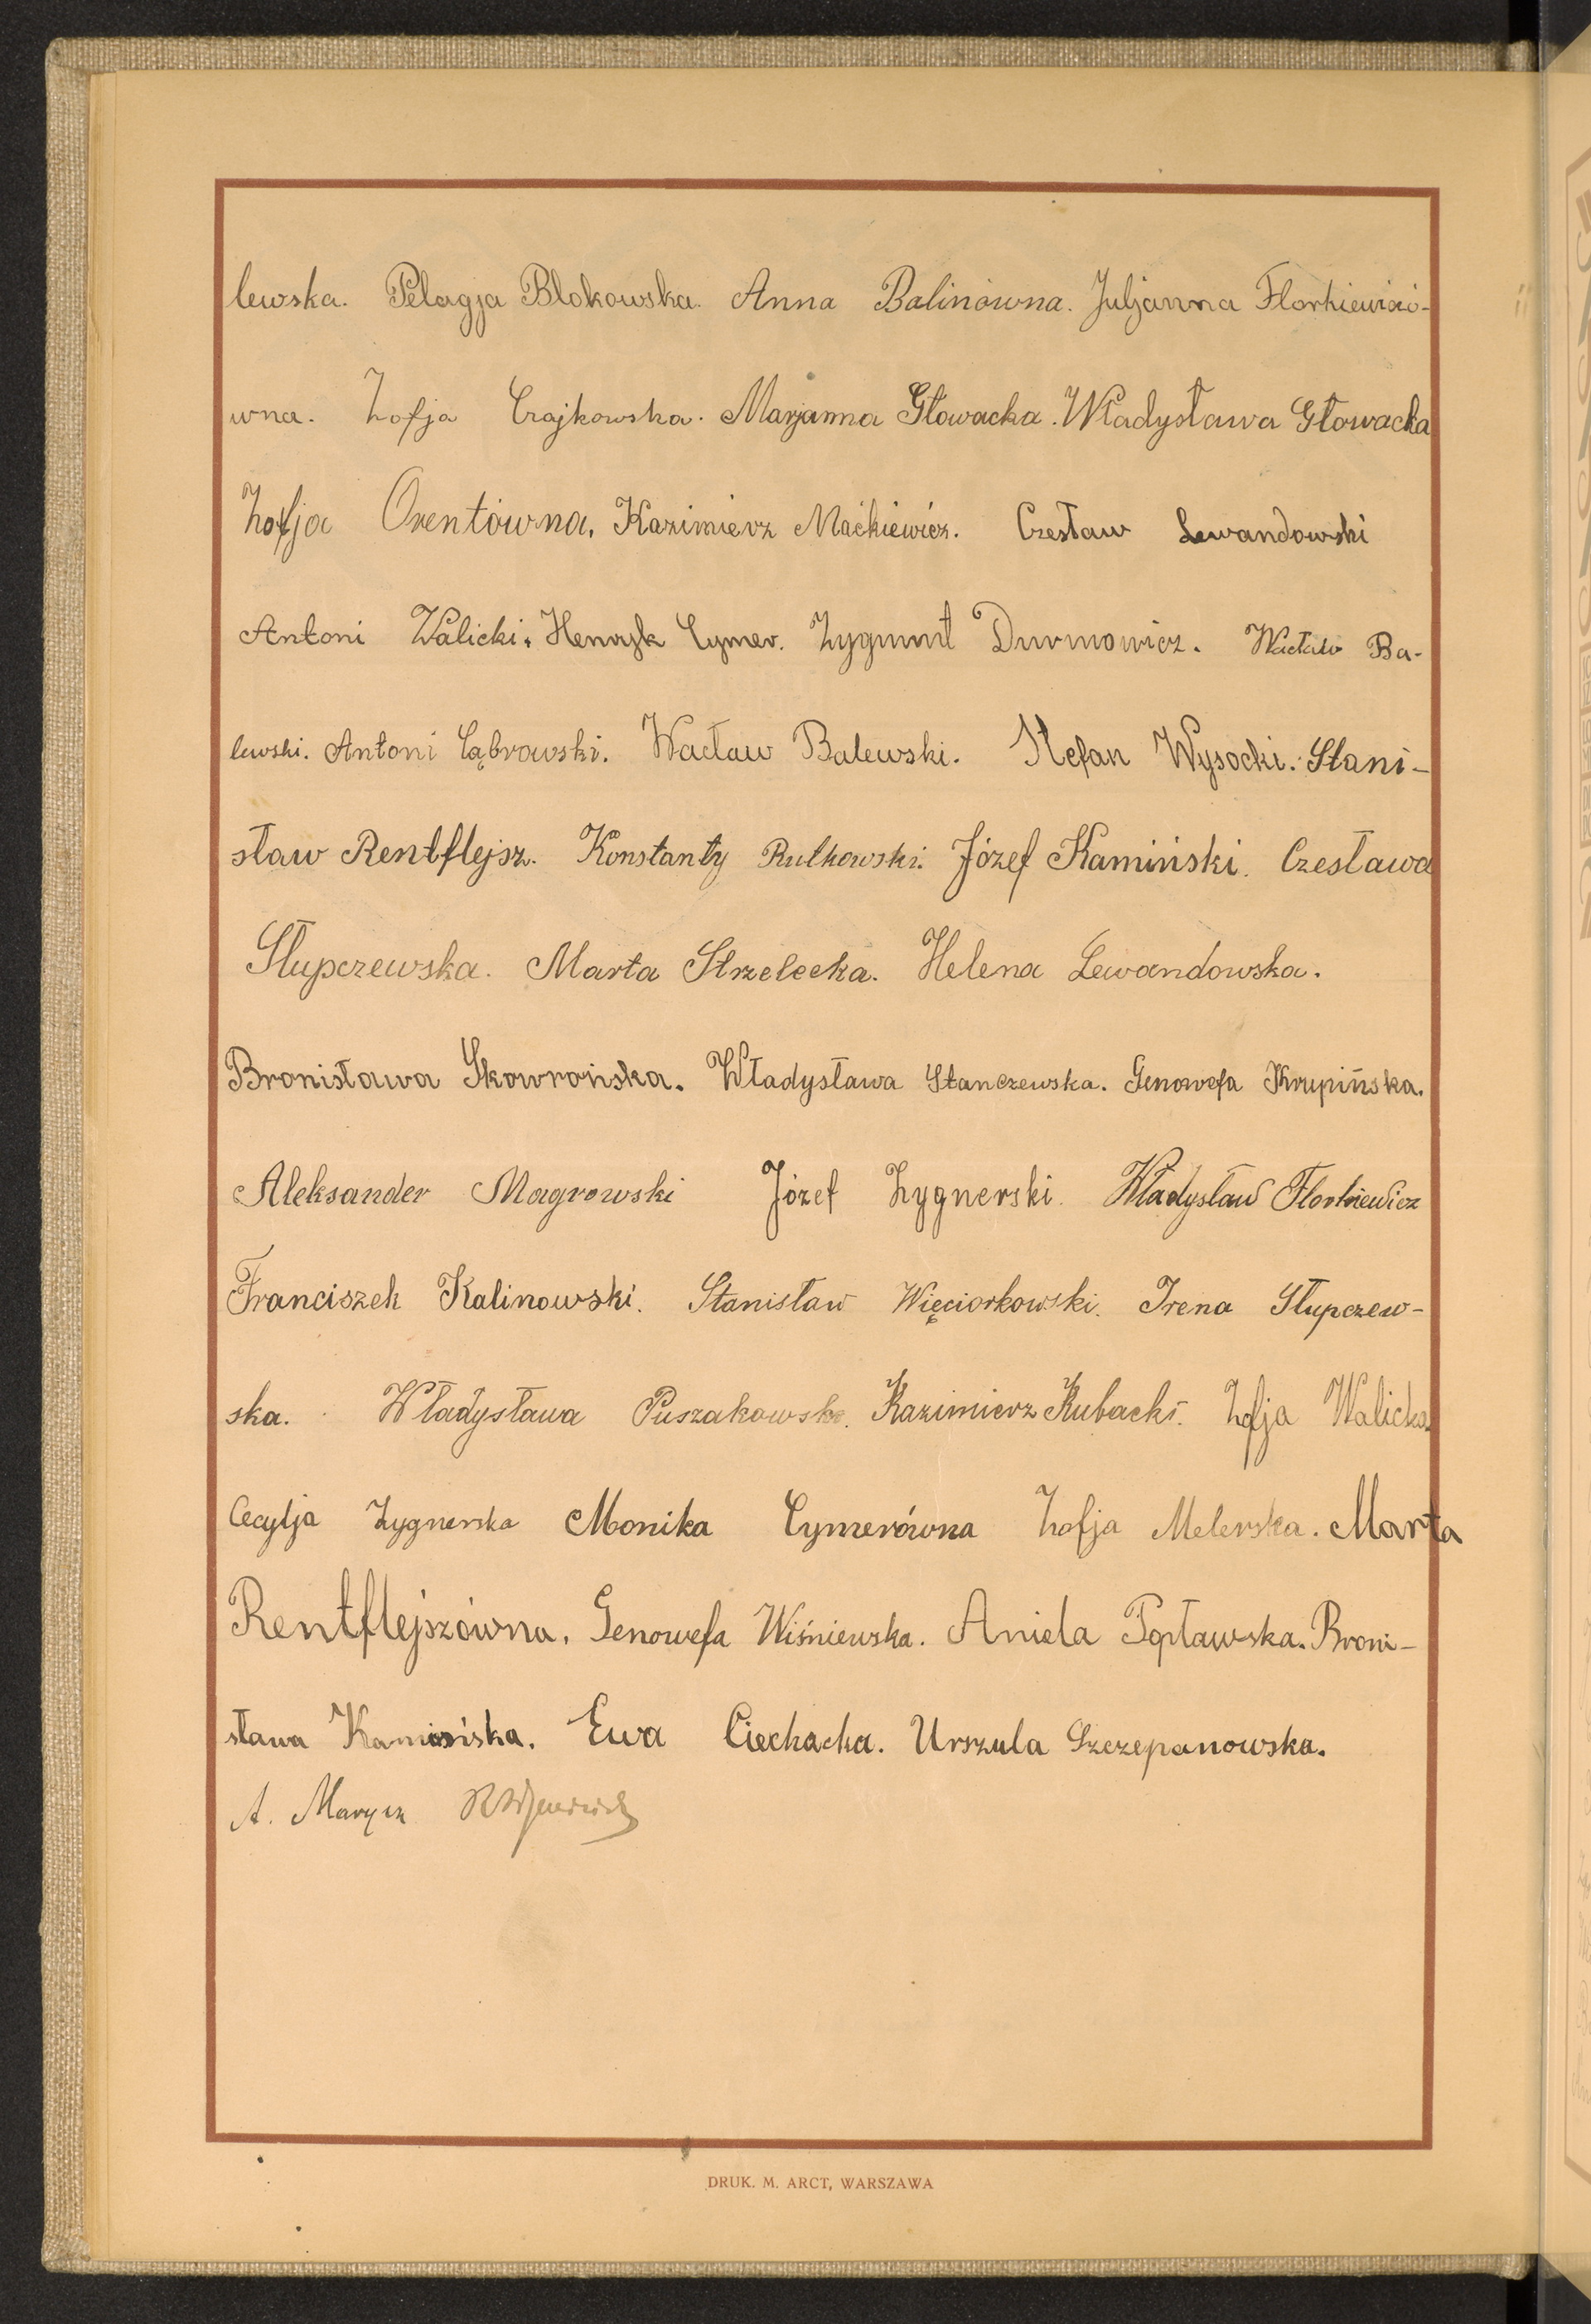 lewska. Pelagja Blokowska. Anna Balinówna. Juljanna Florkiewiczó-
wna. Zofja Czajkowska. Marjanna Głowacka. Władysława Głowacka
Zofja Orentówna. Kazimierz Maćkiewicz. Czesław Lewandowski
Antoni Walicki. Henryk Cymer. Zygmunt Durmowicz. Wacław Ba-
lewski. Antoni Ząbrowski. Wacław Balewski. Stefan Wysocki. Stani-
sław Rentflejsz. Konstanty Rutkowski. Józef Kamiński. Czesława
Słupczewska. Marta Strzelecka. Helena Lewandowska.
Bronisława Skowrońska. Władysława Stanczewska. Genowefa Krupińska.
Aleksander Magrowski Józef Zygnerski. Władysław Florkiewicz
Franciszek Kalinowski. Stanisław Więciorkowski. Irena Słupczew-
ska. Władysława Puszakowska. Kazimierz Kubacki. Zofja Walicka.
Cecylja Zygnerska Monika Cymerówna Zofja Melerska. Marta
Rentflejszówna. Genowefa Wiśniewska. Aniela Popławska. Broni-
sława Kamińska. Ewa Ciechacka. Urszula Szczepanowska.
A. Marysz
DRUK. M. ARCT, WARSZAWA